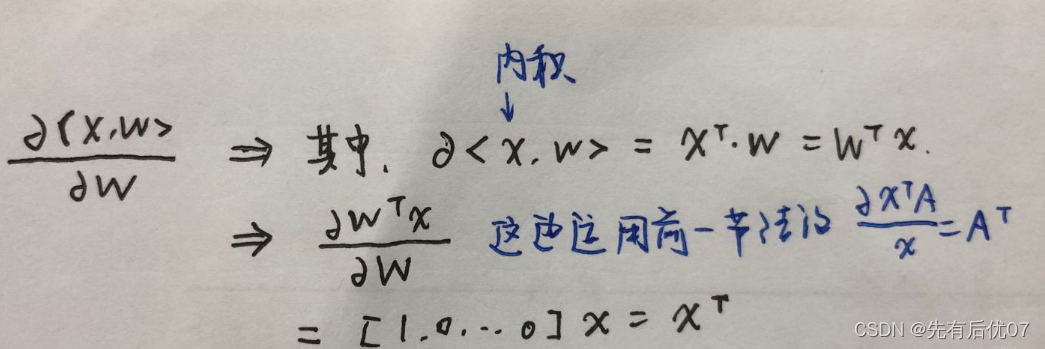 内积
∂<X,W> / ∂W ⇒ 其中, ∂<X,W> = X^T·W = W^T X.
⇒ ∂W^T X / ∂W 这边运用前一节结论 ∂X^T A / x = A^T
= [1.0.…0] X = X^T
CSDN @先有后优07